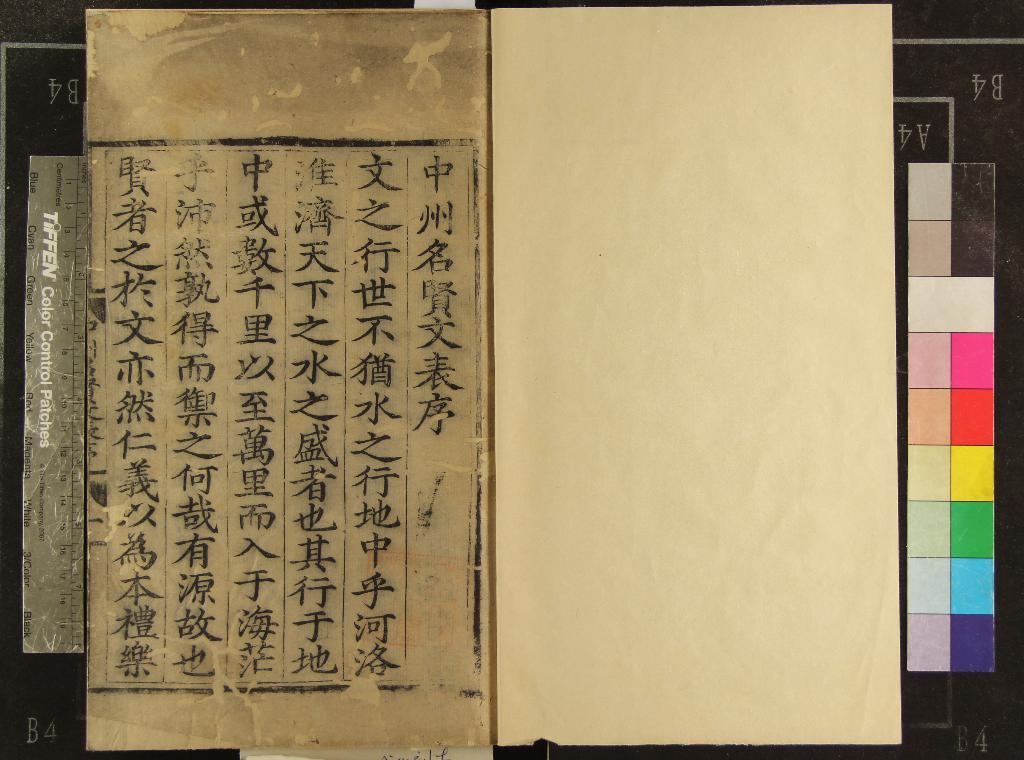 中州名賢文表序
文之行世不猶水之行地中乎河洛
淮濟天下之水之盛者也其行于地
中或數千里以至萬里而入于海茫
乎沛然孰得而禦之何哉有源故也
賢者之於文亦然仁義以為本禮樂
B4
B4
A4
B4
B4
TIFFEN Color Control Patches
Centimetres
Blue
Cyan
Green
Yellow
Red
Magenta
White
3/Color
Black